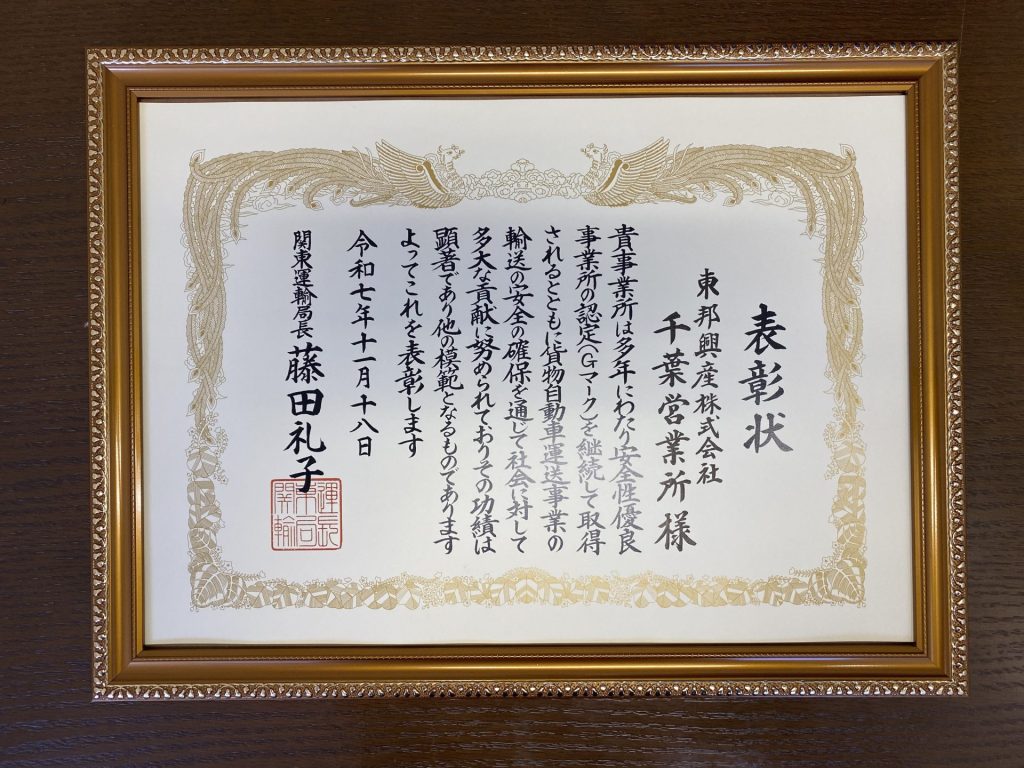 表彰状
東邦興産株式会社
千葉営業所様
貴事業所は多年にわたり安全性優良
事業所の認定(Gマーク)を継続して取得
されるとともに貨物自動車運送事業の
輸送の安全の確保を通じて社会に対して
多大な貢献に努められておりその功績は
顕著であり他の模範となるものであります
よってこれを表彰します
令和七年十一月十八日
関東運輸局長 藤田礼子
運輸局長